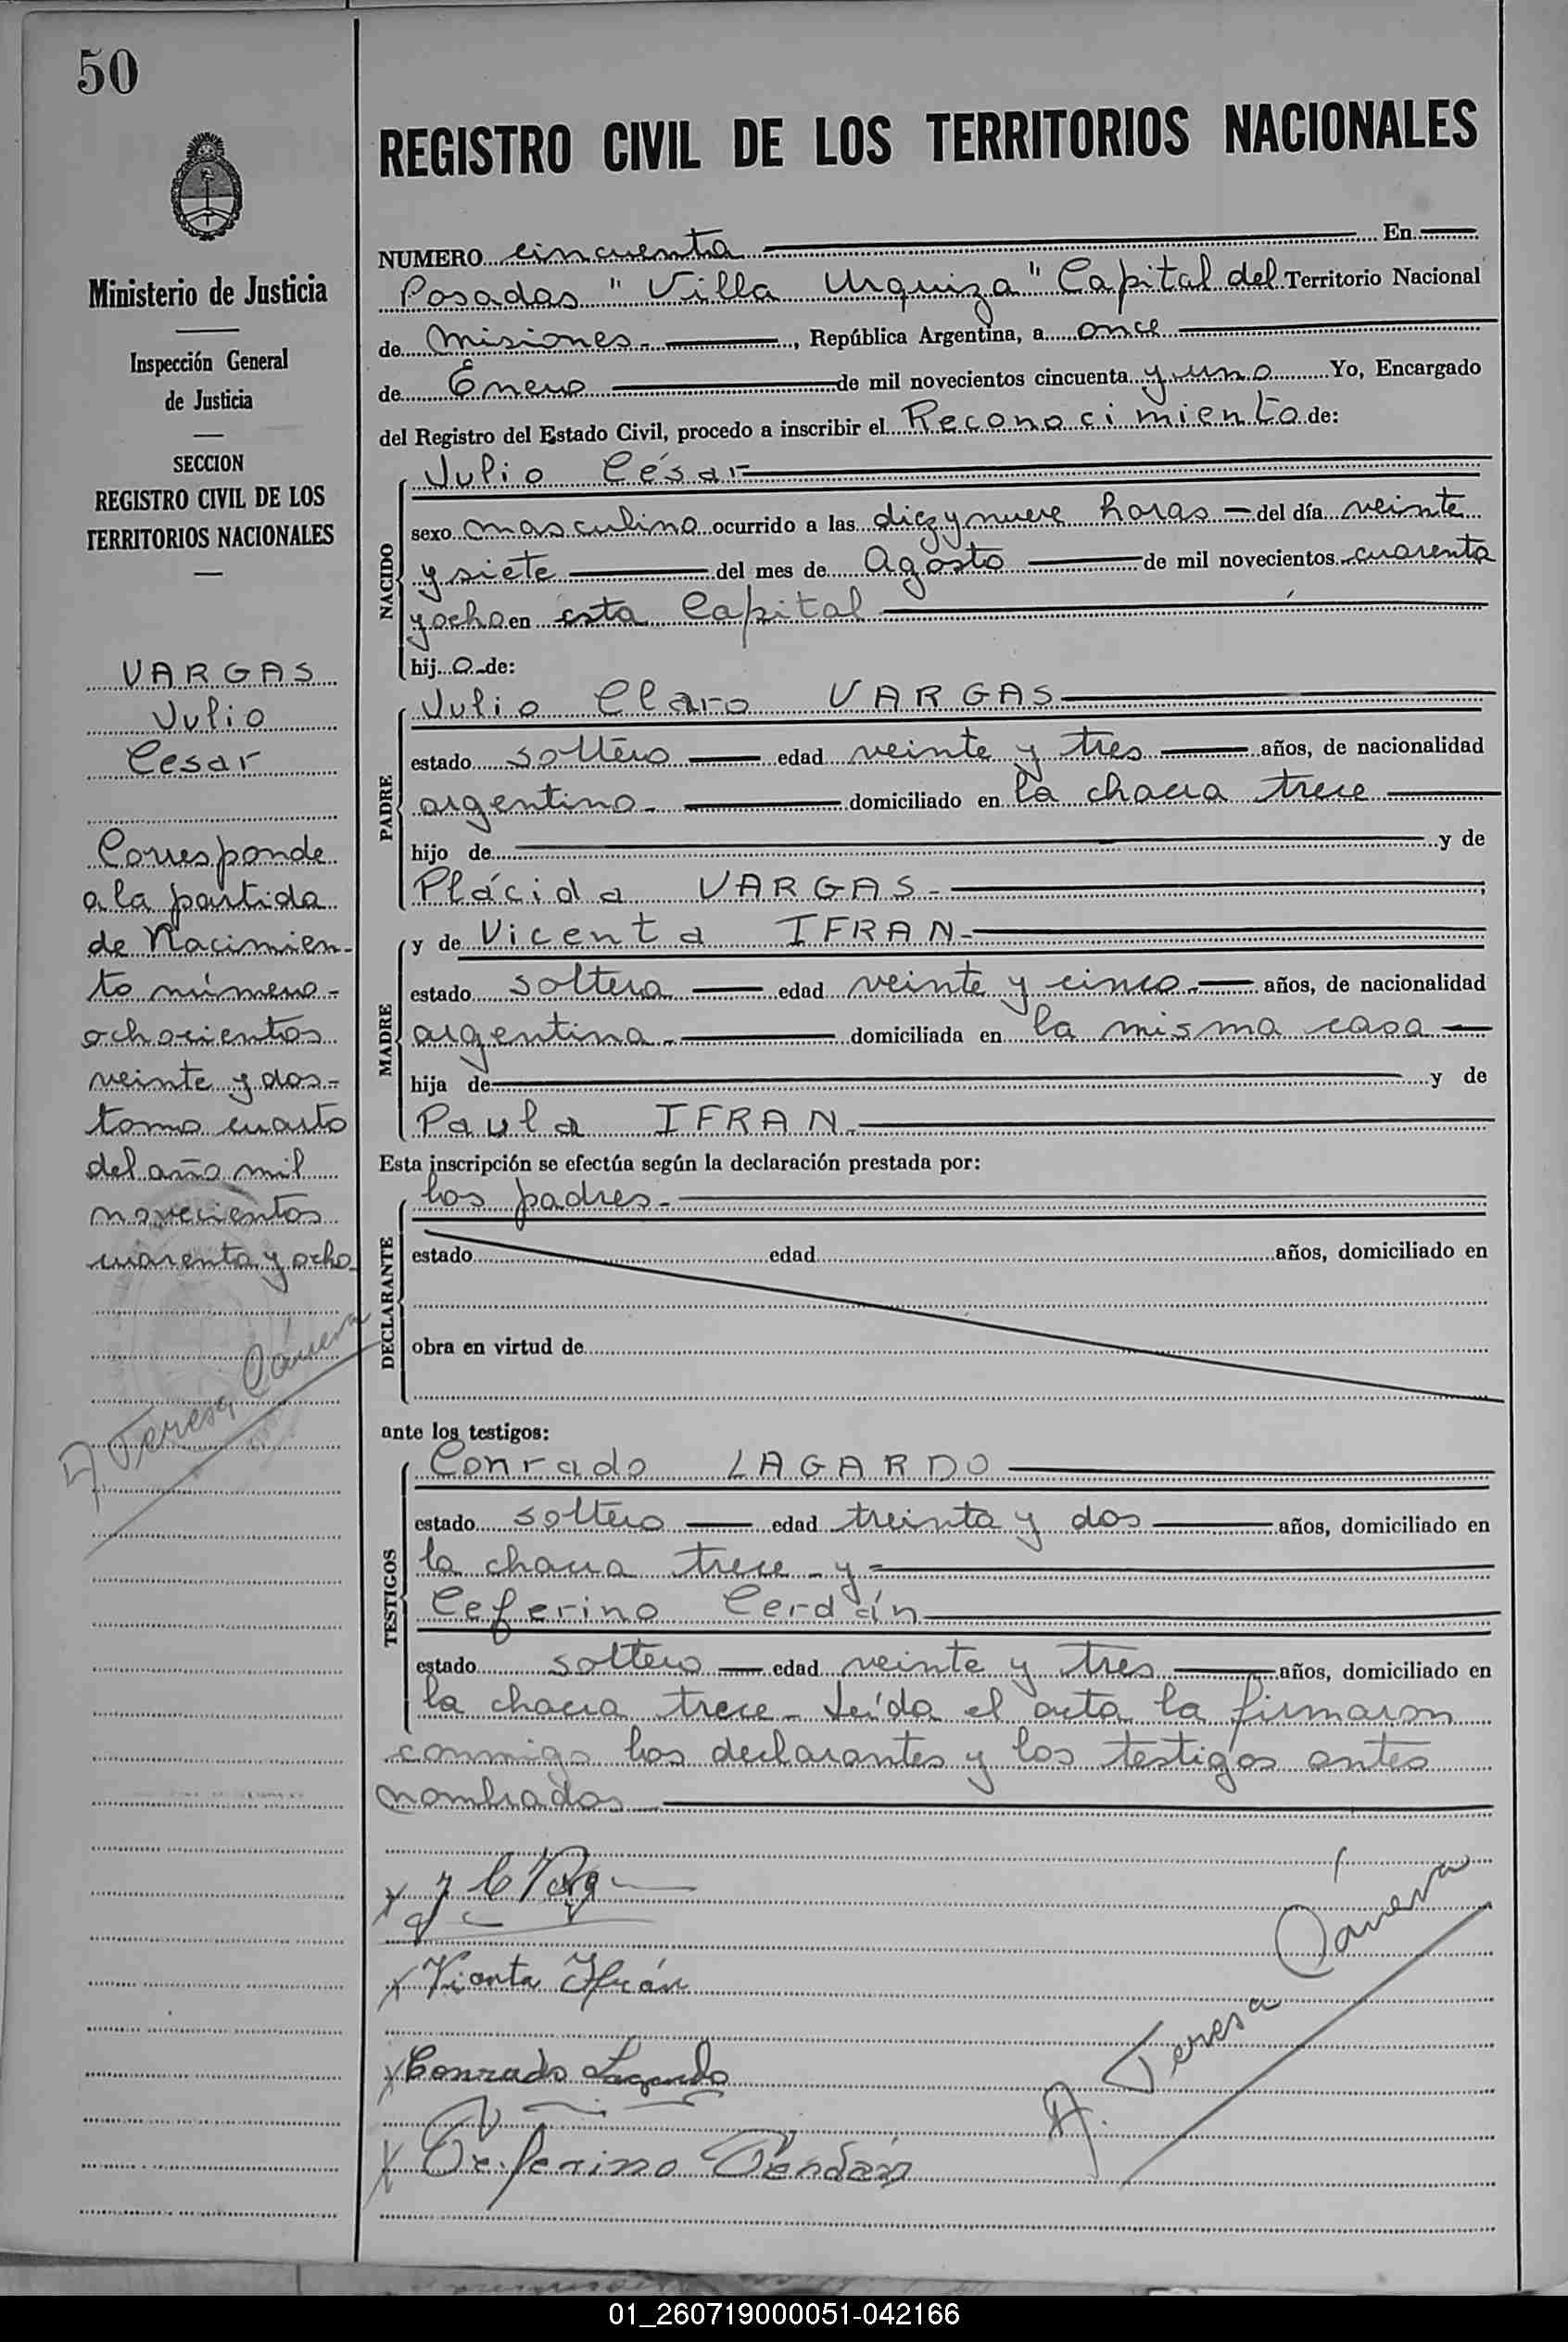 50
Ministerio de Justicia
Inspección General
de Justicia
SECCION
REGISTRO CIVIL DE LOS
TERRITORIOS NACIONALES
VARGAS
Julio
Cesar
Corresponde
a la partida
de Nacimien-
to número-
ochocientos
veinte y dos-
tomo cuarto
del año mil
novecientos
cuarenta y ocho-
A. Teresa Cáneva
REGISTRO CIVIL DE LOS TERRITORIOS NACIONALES
NUMERO cincuenta En
Posadas "Villa Urquiza" Capital del Territorio Nacional
de Misiones.-, República Argentina, a once
de Enero de mil novecientos cincuenta y uno Yo, Encargado
del Registro del Estado Civil, procedo a inscribir el Reconocimiento de:
NACIDO
Julio César
sexo masculino ocurrido a las diez y nueve horas - del día veinte
y siete del mes de Agosto de mil novecientos cuarenta
y ocho en esta Capital
hij o de:
PADRE
Julio Claro VARGAS
estado soltero edad veinte y tres años, de nacionalidad
argentino- domiciliado en la chacra trece
hijo de y de
Plácida VARGAS-
MADRE
y de Vicenta IFRAN-
estado soltera edad veinte y cinco.- años, de nacionalidad
argentina- domiciliada en la misma casa
hija de y de
Paula IFRAN-
Esta inscripción se efectúa según la declaración prestada por:
DECLARANTE
los padres-
estado edad años, domiciliado en
obra en virtud de
ante los testigos:
TESTIGOS
Conrado LAGARDO
estado soltero edad treinta y dos años, domiciliado en
la chacra trece - y -
Ceferino Cerdán
estado soltero edad veinte y tres años, domiciliado en
la chacra trece - Leída el acta la firmaron
conmigo los declarantes y los testigos antes
nombrados
x J C
x Vicenta Ifrán
x Conrado Lagardo
x Ceferino Cerdán
A. Teresa Cáneva
01_260719000051-042166